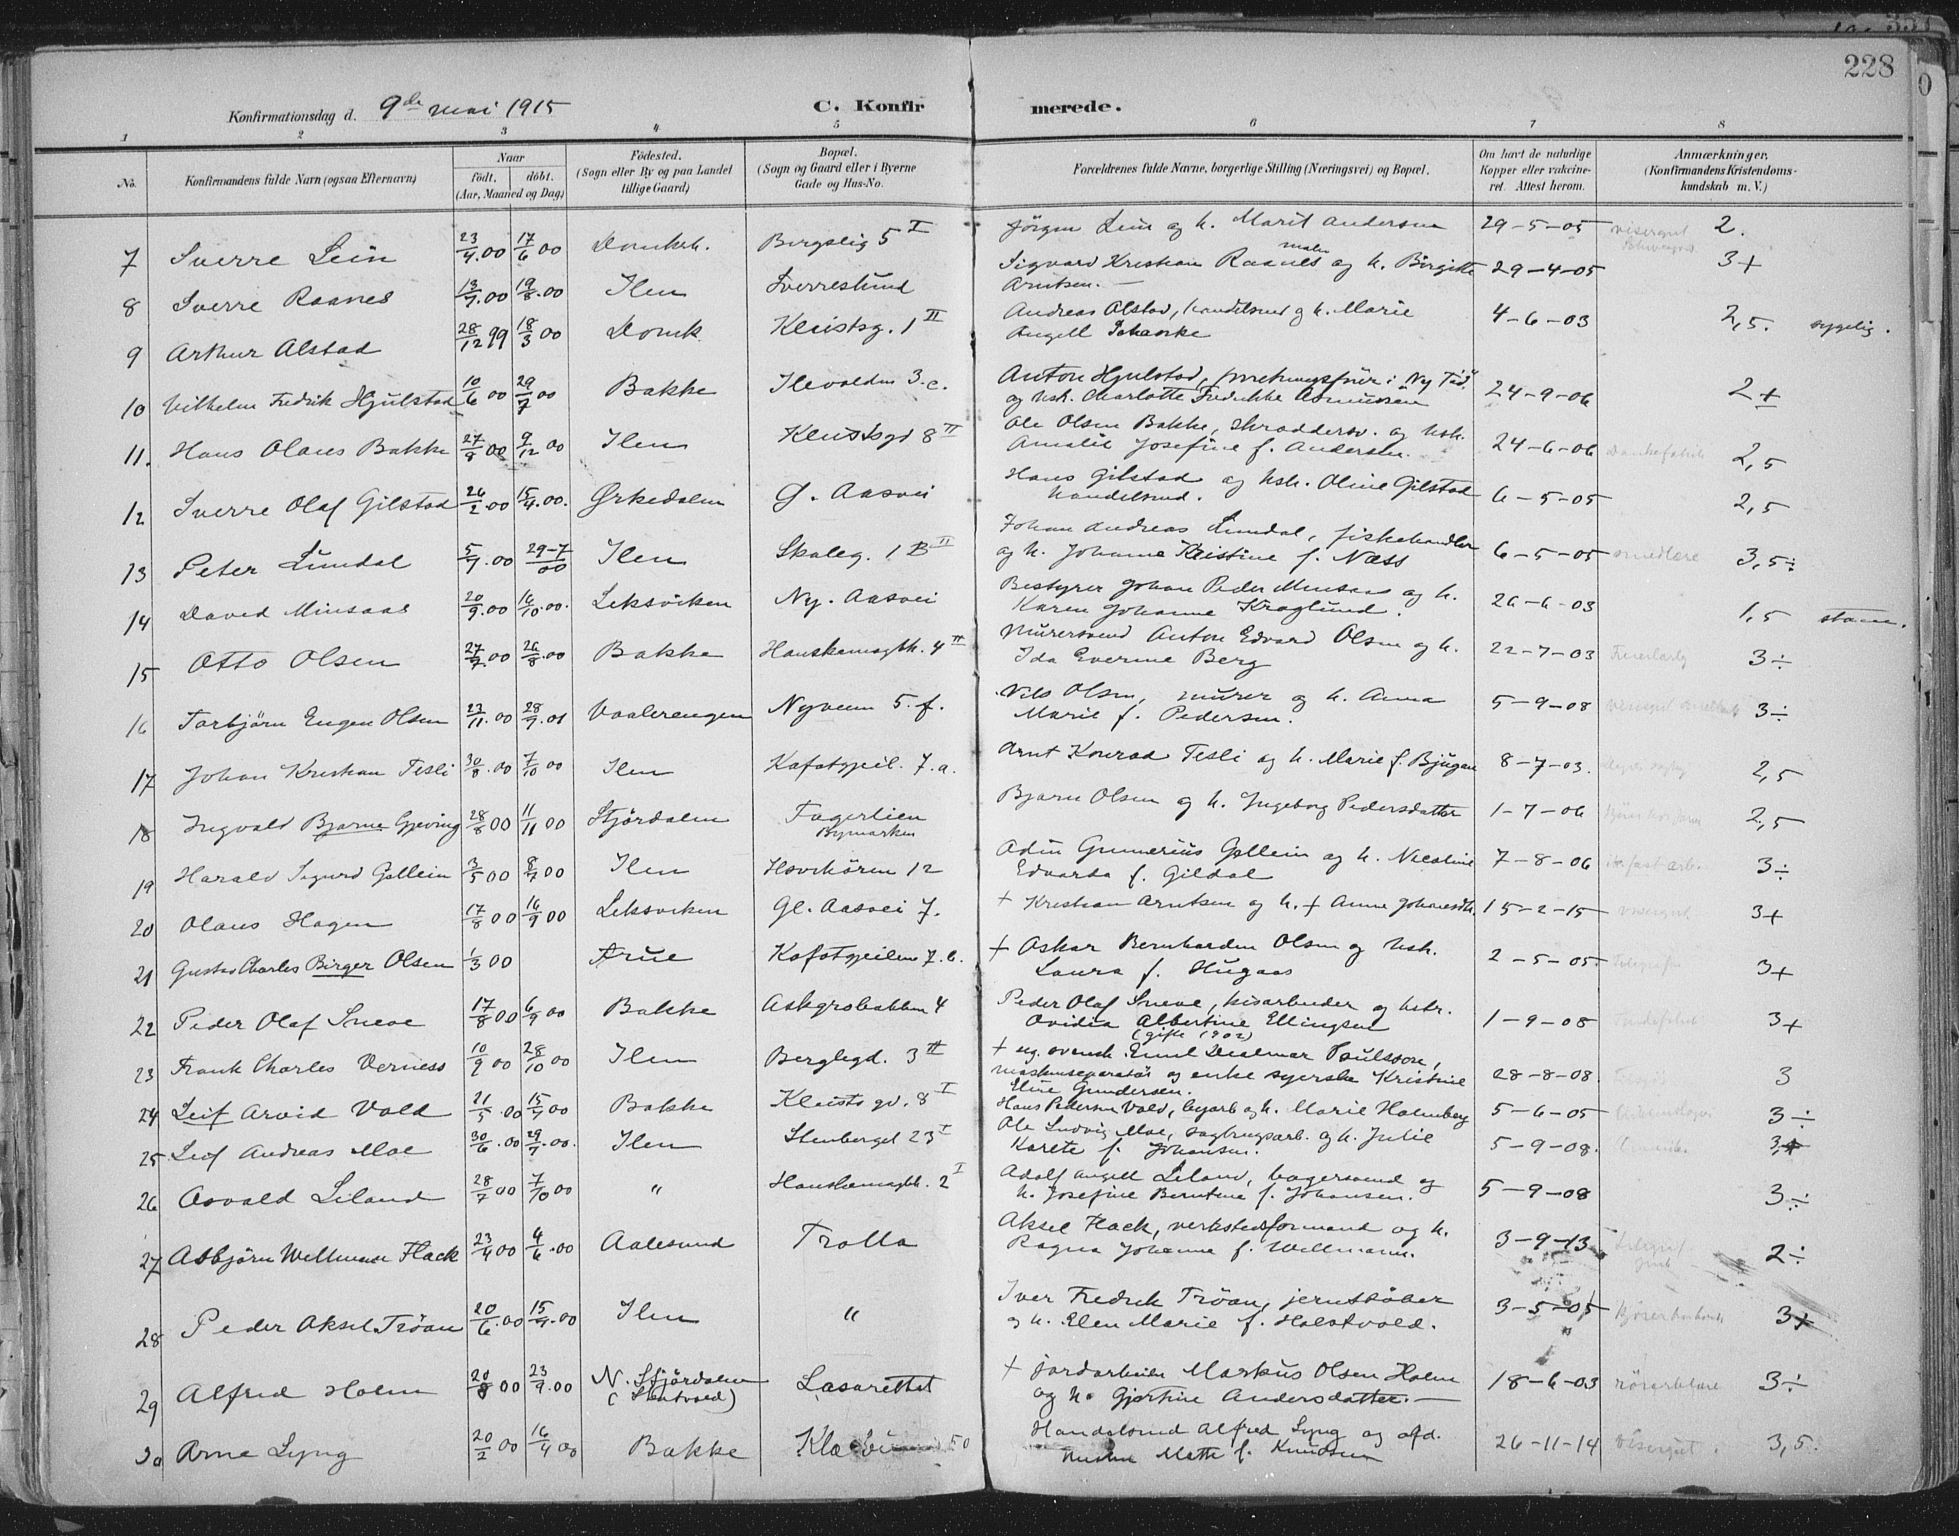 331
228
Konfirmationsdag d. 9de mai 1915
C. Konfirmerede.
1 2 3 4 5 6 7 8
No. Konfirmandens fulde Navn (ogsaa Efternavn) Naar født, døbt. (Aar, Maaned og Dag) Fødested. (Sogn eller By og paa Landet tillige Gaard) Bopæl. (Sogn og Gaard eller i Byerne Gade og Hus-No. Forældrenes fulde Navne, borgerlige Stilling (Næringsvei) og Bopæl. Om havt de naturlige Kopper eller vakcineret. Attest herom. Anmærkninger, (Konfirmandens Kristendomskundskab m. V.)
7 Sverre Lein 23/4.00 17/6 00 Domkrk. Bergslig 5 I Jörgen Lein og h. Marit Andersen 29-5-05 visergut 2.
8 Sverre Raanes 13/7.00 19/8.00 Ilen Sverreslund Sigvard Kristian Raanes maler og h. Birgitte 29-4-05 3+
Arntsen.
9 Arthur Alstad 28/12 99 18/3 00 Domk Klostsg. 1 II Andreas Alstad, handelsmd og h. Marie 4-6-03 2,5. sygelig.
Angell Schavske
10 Vilhelm Fredrik Hjulstad 10/6 00 29/7 00 Bakke Ilevolden 3.c. Anton Hjulstad, forretningsfører i "Ny Tid" 24-9-06 2+
og hst. Charlotte Fredrikke Asmussen
11. Hans Olaus Bakke 27/8 00 9/12 00 Ilen Klostsgd 8 II Ole Olsen Bakke, skræddersv. og hst. 24-6-06 2,5
Amalie Josefine f. Andersen.
12 Sverre Olaf Gilstad 26/2.00 15/4.00. Ørkedalen G. Aasvei Hans Gilstad og hst. Oline Gilstad 6-5-05 2,5
handelsmd.
13 Peter Lundal 5/7.00 29-7/00 Ilen Skoleg. 1 B II Johan Andreas Lundal, fiskehandler 6-5-05 smedlære 3,5÷
og h. Johanne Kristine f. Næss
14 David Minsaas 20/9.00 16/10.00. Leksviken Ny. Aasvei Bestyrer Johan Peder Minsaas og h. 26-6-03 1,5 stam.
Karen Johanne Kraglund.
15 Otto Olsen 27/7.00 26/8.00 Bakke Hanskemagbk. 4 II Murersvend Anton Edvard Olsen og h. 22-7-03 3÷
Ida Everine Berg
16 Torbjörn Eugen Olsen 23/11.00 28/9.01 Vaalerengen Nyveien 5.f. Nils Olsen, murer og h. Anna 5-9-08 3÷
Marie f. Pedersen.
17 Johan Kristian Tesli 30/8.00 7/10 00 Ilen Kafotgeil. 7.a. Arnt Konrad Tesli og h. Marie f. Bjugan 8-7-03. 2,5
18 Ingvald Bjarne Gjeving 28/8 00 11/11 00 Stjördalen Fagerlien Bjarne Olsen og h. Ingeborg Pedersdatter 1-7-06 2,5
Bymarken
19 Harald Sigurd Gallein 3/5 00 8/7 00 Ilen Havnhören 12 Adin Gunnerius Gallein og h. Nicoline 7-8-06 3÷
Edvarda f. Gildal
20 Olaus Hagen 17/8 00 16/9 00 Leksviken Gl. Aasvei 7. + Kristian Arntsen og h. + Anne Johansdtr. 15-2-15 visergut 3+
21 Gustav Charles Birger Olsen 1/3 00 Kafotgeilen 7.b. + Oskar Bernhardin Olsen og hst. 2-5-05. 3+
Laura f. Hugaas
22 Peder Olaf Sneve 17/8 00 6/9 00 Bakke Askgrobakken 4 Peder Olaf Sneve, bisarbeider og hstr. 1-9-08 3+
Ovidia Albertine Ellingsen
(gift 1902)
23 Frank Charles Verness 10/9 00 28/10 00 Ilen Berglegd. 3 II + ug. svensk. Emil Dealmar Paulsson, 28-8-08. 3
maskinreparatör og enke syerske Kristine
Eline Gundersen.
24 Leif Arvid Vold 21/5.00 15/7 00 Bakke Klosts gd. 8 I Hans Pedersen Vold, byarb og h. Marie Holmberg 5-6-05 3÷
25 Leif Andreas Moe 30/6.00 29/7.00. Ilen Stenberget 23 I Ole Ludvig Moe, sagbrugsarb. og h. Julie 5-9-08. 3+
Karete f. Johansen.
26 Osvald Leland 28/7 00 7/10 00 " Hanskemagbk. 2 I Adolf Angell Leland, bagersvend og 5-9-08 3÷
h. Josefine Berntine f. Johansen.
27 Asbjörn Wellmann Flack 23/4 00 4/6.00 Aalesund Trolla Aksel Flack, verkstedsformand og h. 3-9-13 2÷
Ragna Johanne f. Wellmann.
28 Peder Aksel Tröan 20/6.00 15/7.00 Ilen " Iver Fredrik Tröan, jernstöber 3-5-05 3+
og h. Elen Marie f. Halstvold.
29 Alfred Holm 20/8 00 23/9.00 N. Stjördalen Lasarettet + jordarbeider Markus Olsen Holm 18-6-03 rörarblære 3÷
(Skatvold) og h. Gjertine Andersdatter.
30 Arne Lyng 20/2 00 16/4 00 Bakke 50 Handelsmd Alfred Lyng og afd. 26-11-14 Visergut 3,5.
hustru Mette f. Knudsen